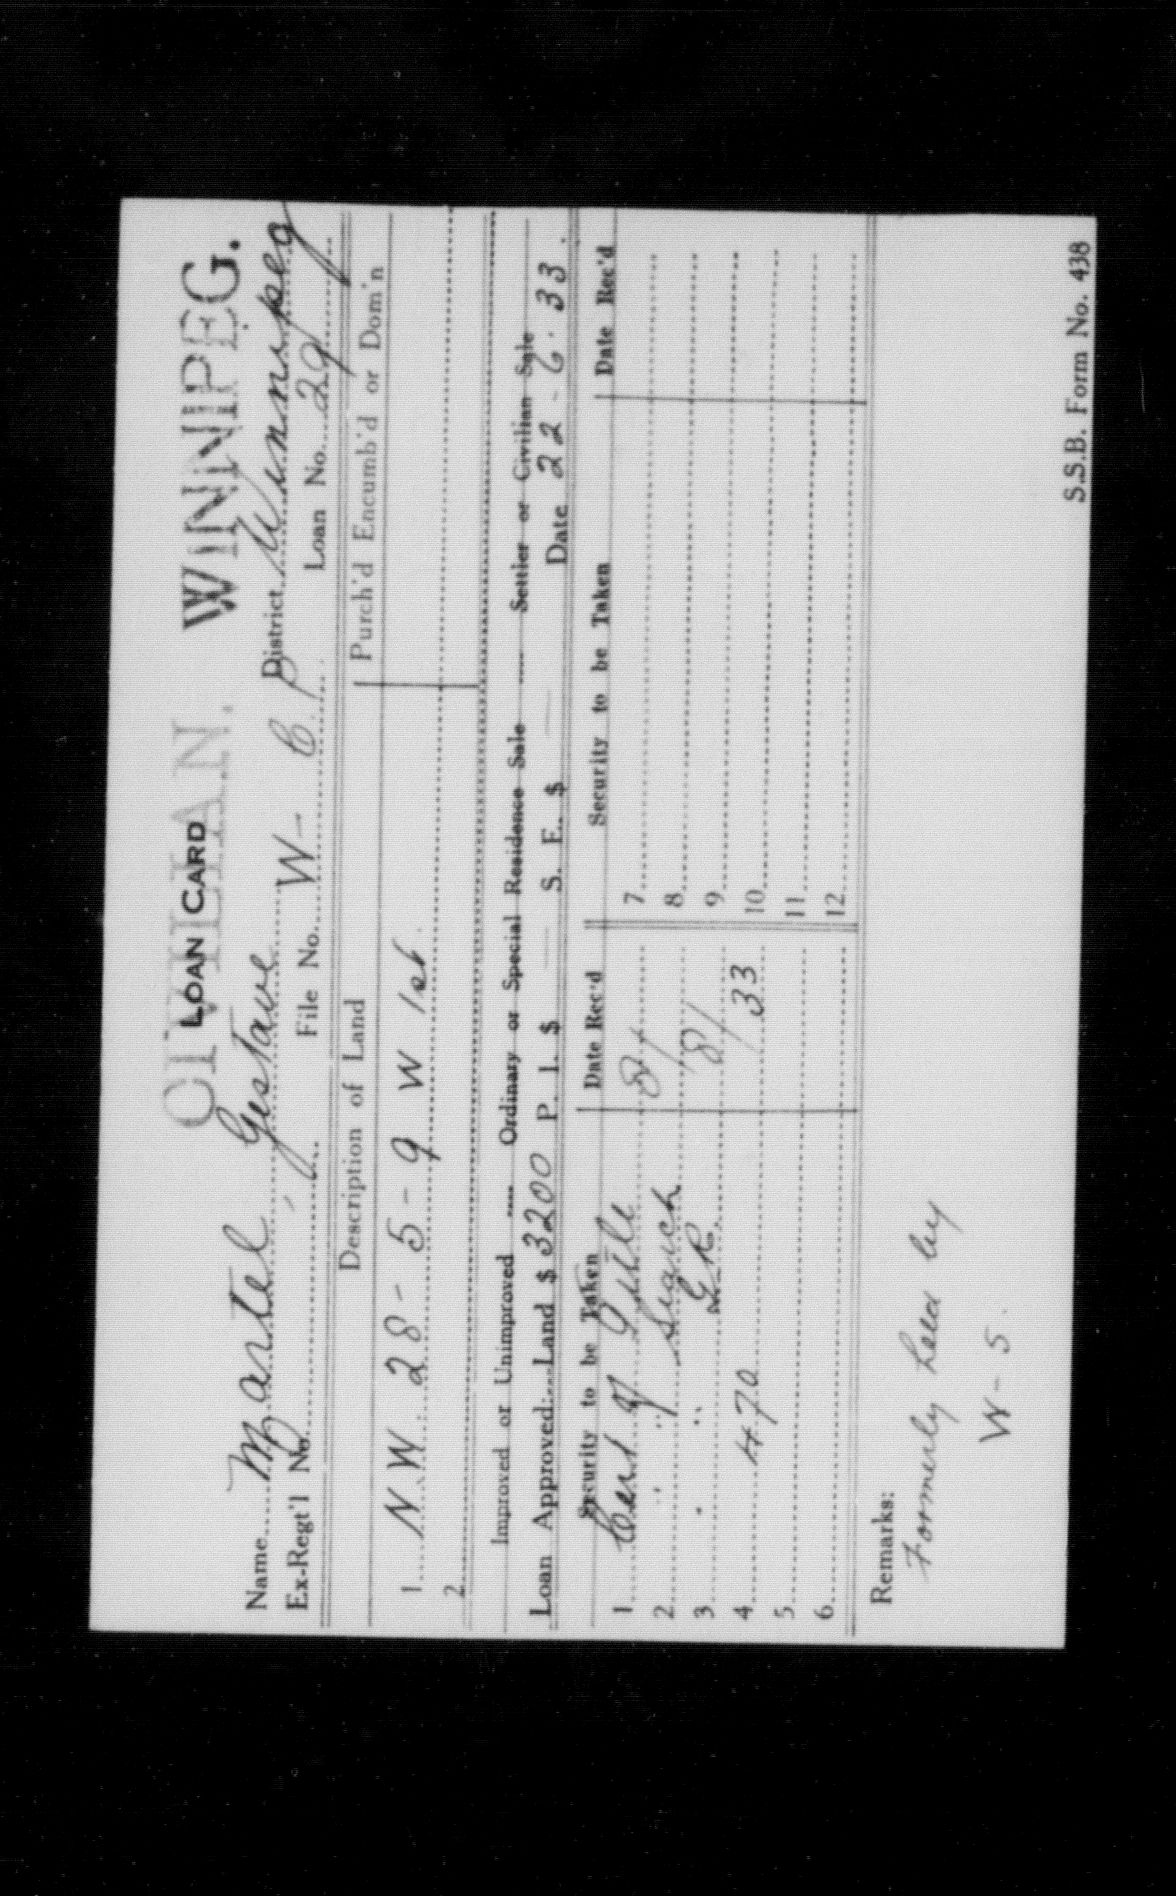 CIVILIAN. WINNIPEG.
LOAN CARD
Name Martel, Gustave District Winnipeg
Ex-Regt'l No. File No. W- C. P Loan No. 29
Description of Land Purch'd Encumb'd or Dom'n
1 N.W. 28 - 5 - 9 W 1st.
2
Improved or Unimproved Ordinary or Special Residence Sale Settler or Civilian Sale
Loan Approved: Land $ 3200 P. I. $ — S. E. $ — Date 22 - 6 . 33 .
Security to be Taken Date Rec'd Security to be Taken Date Rec'd
1 Cert of Title 8/ 7
2 " " Search 8/ 8
3 " " G.R. 9
4 470 33 10
5 11
6 12
Remarks:
Formerly held by
W - 5
S.S.B. Form No. 438